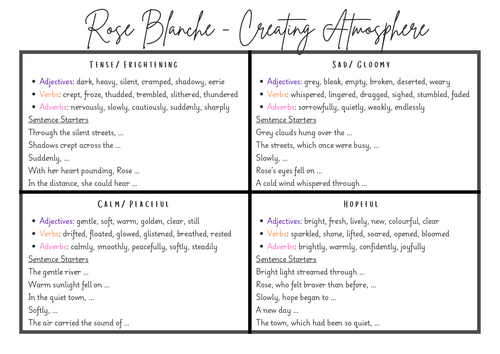 Rose Blanche - Creating Atmosphere
Tense/ Frightening
• Adjectives: dark, heavy, silent, cramped, shadowy, eerie
• Verbs: crept, froze, thudded, trembled, slithered, thundered
• Adverbs: nervously, slowly, cautiously, suddenly, sharply
Sentence Starters
Through the silent streets, ...
Shadows crept across the ...
Suddenly, ...
With her heart pounding, Rose ...
In the distance, she could hear ...
Sad/ Gloomy
• Adjectives: grey, bleak, empty, broken, deserted, weary
• Verbs: whispered, lingered, dragged, sighed, stumbled, faded
• Adverbs: sorrowfully, quietly, weakly, endlessly
Sentence Starters
Grey clouds hung over the ...
The streets, which once were busy, ...
Slowly, ...
Rose's eyes fell on ...
A cold wind whispered through ...
Calm/ Peaceful
• Adjectives: gentle, soft, warm, golden, clear, still
• Verbs: drifted, floated, glowed, glistened, breathed, rested
• Adverbs: calmly, smoothly, peacefully, softly, steadily
Sentence Starters
The gentle river ...
Warm sunlight fell on ...
In the quiet town, ...
Softly, ...
The air carried the sound of ...
Hopeful
• Adjectives: bright, fresh, lively, new, colourful, clear
• Verbs: sparkled, shone, lifted, soared, opened, bloomed
• Adverbs: brightly, warmly, confidently, joyfully
Sentence Starters
Bright light streamed through ...
Rose, who felt braver than before, ...
Slowly, hope began to ...
A new day ...
The town, which had been so quiet, ...